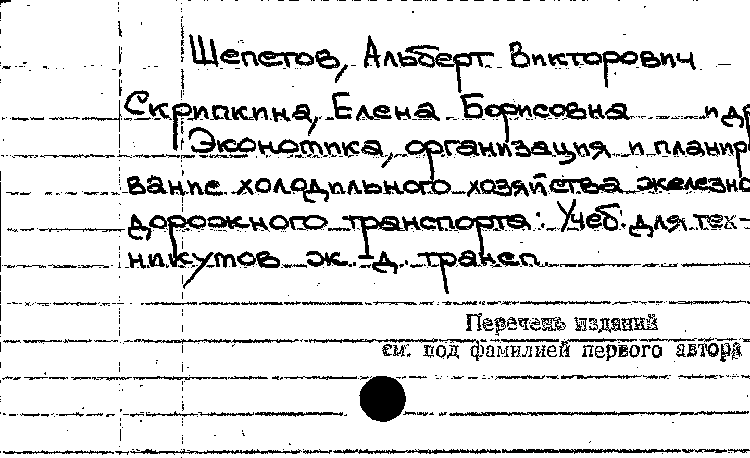 Шепетов, Альберт Викторович
Скрипкина, Елена Борисовна и др
Экономика, организация и планиро
вание холодильного хозяйства железно
дорожного транспорта: Учеб. для тех-
никумов ж.-д. трансп.
Перечень изданий
см. под фамилией первого автора